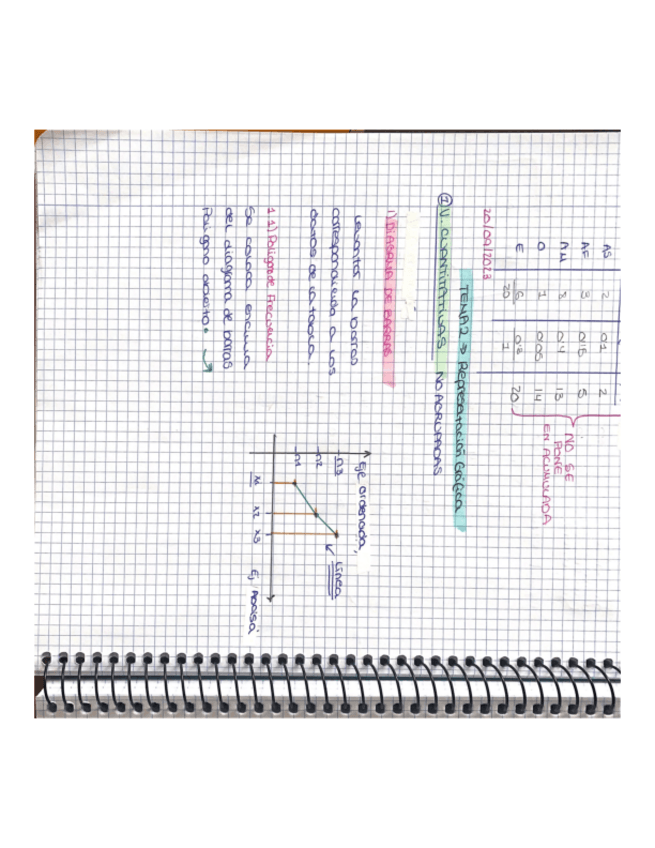 AS 2 0'1 2
AF 3 0'15 5
AM 8 0'4 13
O 1 0'05 14
E 6 0'3 20
20 1
NO SE
PONE
EN ACUMULADA
20/09/2023
TEMA 2 → Representación Gráfica
① V. CUANTITATIVAS NO AGRUPADAS
1) DIAGRAMA DE BARRAS
Levantar la barras
correspondiendo a los
datos de la tabla.
1.1) Polígono de Frecuencia
Se coloca encima
del diagrama de barras
Polígono abierto.
Eje ordenada
n3
n2
n1
Línea
x1 x2 x3
Ej Abcisa